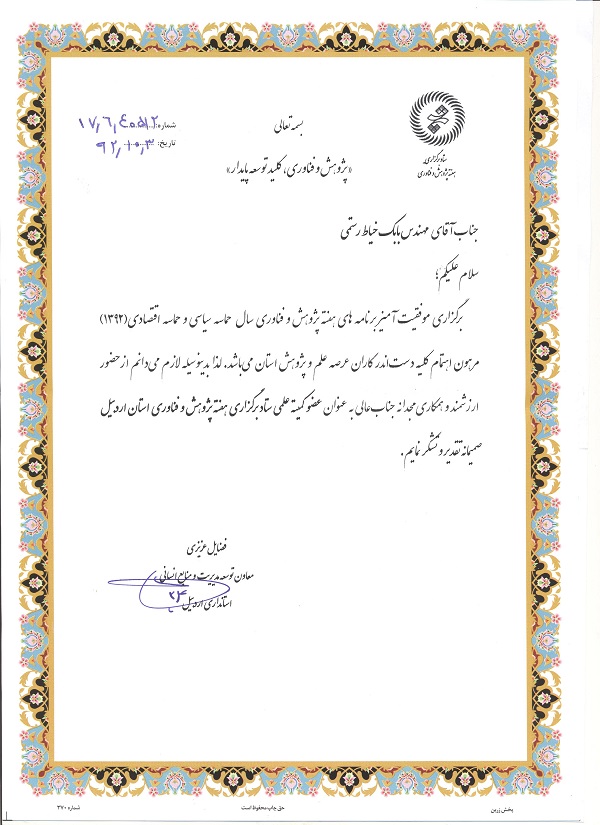 بسمه تعالی
شماره: ۱۷٫۶٫۴۰۵۱۲
تاریخ: ۹۲٫۱۰٫۳
ستاد برگزاری
هفته پژوهش و فناوری
«پژوهش و فناوری، کلید توسعه پایدار»
جناب آقای مهندس بابک خیاط رستمی
سلام علیکم؛
برگزاری موفقیت آمیز برنامه های هفته پژوهش و فناوری سال حماسه سیاسی و حماسه اقتصادی(۱۳۹۲)
مرهون اهتمام کلیه دست اندرکاران عرصه علم و پژوهش استان می باشد. لذا بدینوسیله لازم می دانم از حضور
ارزشمند و همکاری مجدانه جناب عالی به عنوان عضو کمیته علمی ستاد برگزاری هفته پژوهش و فناوری استان اردبیل
صمیمانه تقدیر و تشکر نمایم.
فضایل عزیزی
معاون توسعه مدیریت و منابع انسانی
استانداری اردبیل
پخش زرین
حق چاپ محفوظ است
شماره ۳۷۰